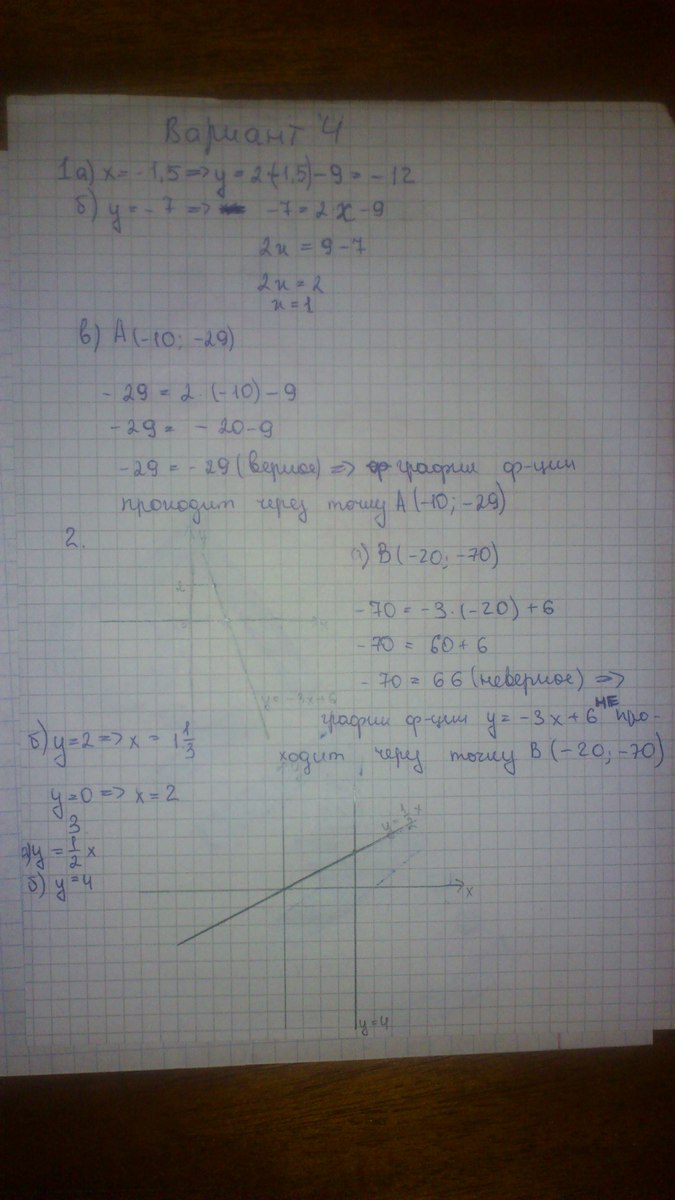 Вариант 4
1а) x = -1,5 => y = 2(-1,5) - 9 = -12
б) y = -7 => -7 = 2x - 9
2x = 9 - 7
2x = 2
x = 1
в) А(-10; -29)
-29 = 2·(-10) - 9
-29 = -20 - 9
-29 = -29 (верное) => график ф-ции
проходит через точку А(-10; -29)
2.
y = -3x+6
б) y = 2 => x = 1 1/3
y = 0 => x = 2
в) B(-20; -70)
-70 = -3·(-20) + 6
-70 = 60 + 6
-70 = 66 (неверное) =>
график ф-ции y = -3x + 6 НЕ про-
ходит через точку B(-20; -70)
3
а) y = 1/2 x
б) y = 4
y = 1/2 x
x
y = 4